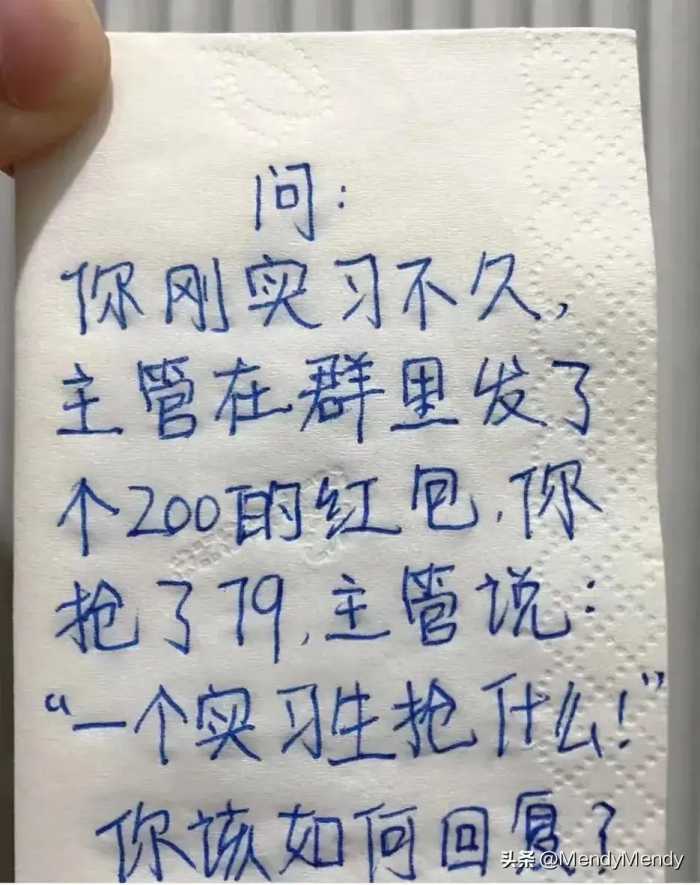 问：
你刚实习不久，
主管在群里发了
个200的红包，你
抢了79，主管说：
“一个实习生抢什么！”
你该如何回复？
头条 @MendyMendy